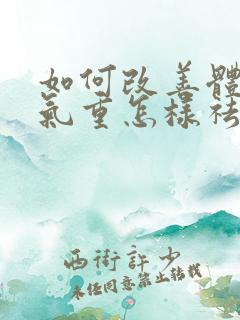 如何改善體
氣重怎樣祛
西街許少
未經同意禁止轉載